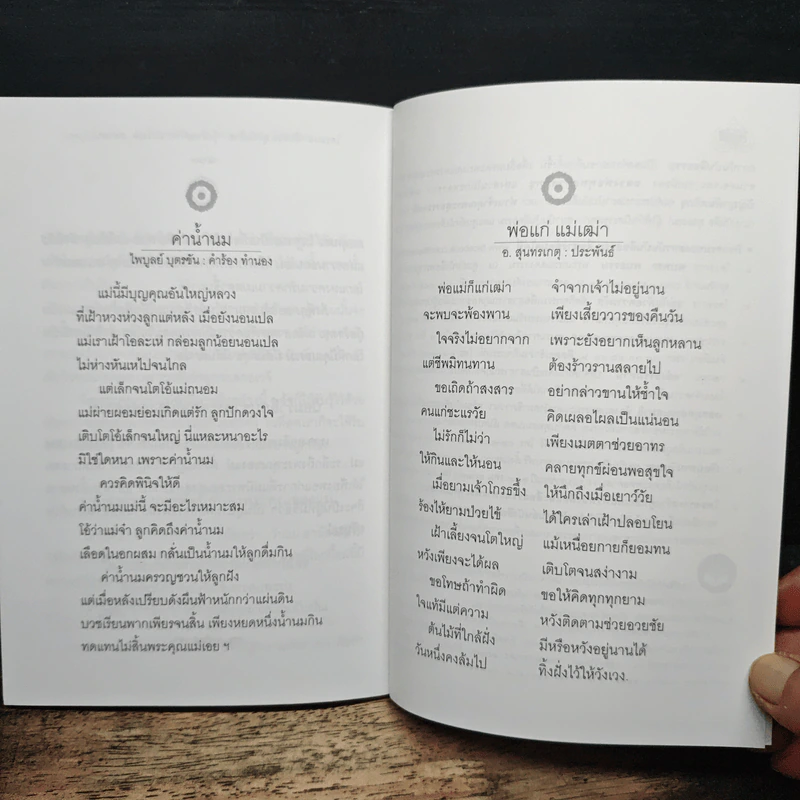 ค่าน้ำนม
ไพบูลย์ บุตรขัน : คำร้อง ทำนอง
แม่นี้มีบุญคุณอันใหญ่หลวง
ที่เฝ้าหวงห่วงลูกแต่หลัง เมื่อยังนอนเปล
แม่เราเฝ้าโอละเห่ กล่อมลูกน้อยนอนเปล
ไม่ห่างหันเหไปจนไกล
แต่เล็กจนโตโอ้แม่ถนอม
แม่ผ่ายผอมย่อมเกิดแต่รัก ลูกปักดวงใจ
เติบโตโอ้เล็กจนใหญ่ นี่แหละหนาอะไร
มิใช่ใดหนา เพราะค่าน้ำนม
ควรคิดพินิจให้ดี
ค่าน้ำนมแม่นี้ จะมีอะไรเหมาะสม
โอ้ว่าแม่จ๋า ลูกคิดถึงค่าน้ำนม
เลือดในอกผสม กลั่นเป็นน้ำนมให้ลูกดื่มกิน
ค่าน้ำนมครวญชวนให้ลูกฝัง
แต่เมื่อหลังเปรียบดังผืนฟ้าหนักกว่าแผ่นดิน
บวชเรียนพากเพียรจนสิ้น เพียงหยดหนึ่งน้ำนมกิน
ทดแทนไม่สิ้นพระคุณแม่เอย ฯ
พ่อแก่ แม่เฒ่า
อ. สุนทรเกตุ : ประพันธ์
พ่อแม่ก็แก่เฒ่า จำจากเจ้าไม่อยู่นาน
จะพบจะพ้องพาน เพียงเสี้ยววารของคืนวัน
ใจจริงไม่อยากจาก เพราะยังอยากเห็นลูกหลาน
แต่ชีพมิทนทาน ต้องร้าวรานสลายไป
ขอเถิดถ้าสงสาร อย่ากล่าวขานให้ช้ำใจ
คนแก่ชะแรวัย คิดเผลอไผลเป็นแน่นอน
ไม่รักก็ไม่ว่า เพียงเมตตาช่วยอาทร
ให้กินและให้นอน คลายทุกข์ผ่อนพอสุขใจ
เมื่อยามเจ้าโกรธขึ้ง ให้นึกถึงเมื่อเยาว์วัย
ร้องไห้ยามป่วยไข้ ได้ใครเล่าเฝ้าปลอบโยน
เฝ้าเลี้ยงจนโตใหญ่ แม้เหนื่อยกายก็ยอมทน
หวังเพียงจะได้ผล เติบโตจนสง่างาม
ขอโทษถ้าทำผิด ขอให้คิดทุกทุกยาม
ใจแท้มีแต่ความ หวังติดตามช่วยอวยชัย
ต้นไม้ที่ใกล้ฝั่ง มีหรือหวังอยู่นานได้
วันหนึ่งคงล้มไป ทิ้งฝั่งไว้ให้วังเวง.